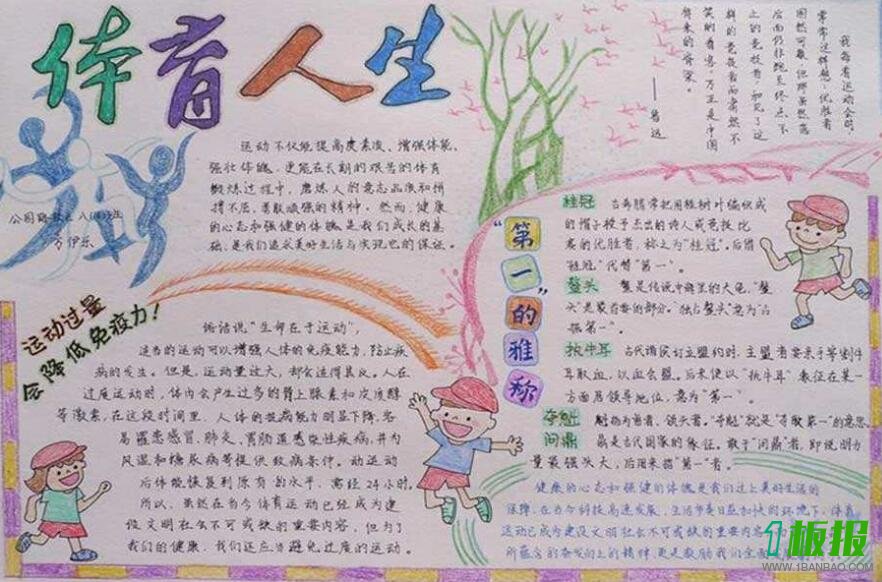 体育人生
运动不仅能提高皮素质、增强体能、
强壮体魄，更能在长期的艰苦的体育
锻炼过程中，磨炼人的意志品质和拼
搏不屈、勇敢顽强的精神，然而，健康
的心态和强健的体魄是我们成长的基
础，是我们追求美好生活与实现它的保证。
我每看运动会时，
常常这样想：优胜者
固然可敬，但那虽然落
后而仍非跑至终点不
止的竞技者，和见了这
样的竞技者而肃然不
笑的看客，乃正是中国
将来的脊梁。
——鲁迅
运动过量
会降低免疫力！
俗话说“生命在于运动”，
适当的运动可以增强人体的免疫能力，防止疾
病的发生。但是，运动量过大，却会适得其反。人在
过度运动时，体内会产生过多的肾上腺素和皮质醇
等激素，在这段时间里，人体的抗病能力明显下降，容
易罹患感冒、肺炎、胃肠道感染性疾病，并为
风湿和糖尿病等提供致病条件。动运动
后体能恢复到原有的水平，需经24小时。
所以，虽然在当今体育运动已经成为建
设文明社会不可或缺的重要内容，但为了
我们的健康，我们还应当避免过度的运动。
“第一”的雅称
桂冠 古希腊常把用桂树叶编织成
的帽子授予杰出的诗人或竞技比
赛的优胜者，称之为“桂冠”。后借
“桂冠”代替“第一”。
鳌头 鳌是传说中海里的大龟，“鳌
头”是最首要的部分。“独占鳌头”意为占
据第一”。
执牛耳 古代诸侯订立盟约时，主盟者要亲手等割牛
耳取血，以血会盟。后来便以“执牛耳”象征在某一
方面居领导地位，意为“第一”。
夺魁 魁指为首者、领头者。“夺魁”就是“夺取第一”的意思。
问鼎 鼎是古代国家的象征。敢于“问鼎”者，即说明力
量最强头大，后用来指“第一”者。
健康的心态和强健的体魄是我们过上美好生活的
保障，在当今科技高速发展，生活节奏日益加快的环境下，体育
运动已成为建设文明社会不可或缺的重要内容
所蕴含的奋发向上的精神，更是激励我们全面
1板报
WWW.1BANBAO.COM